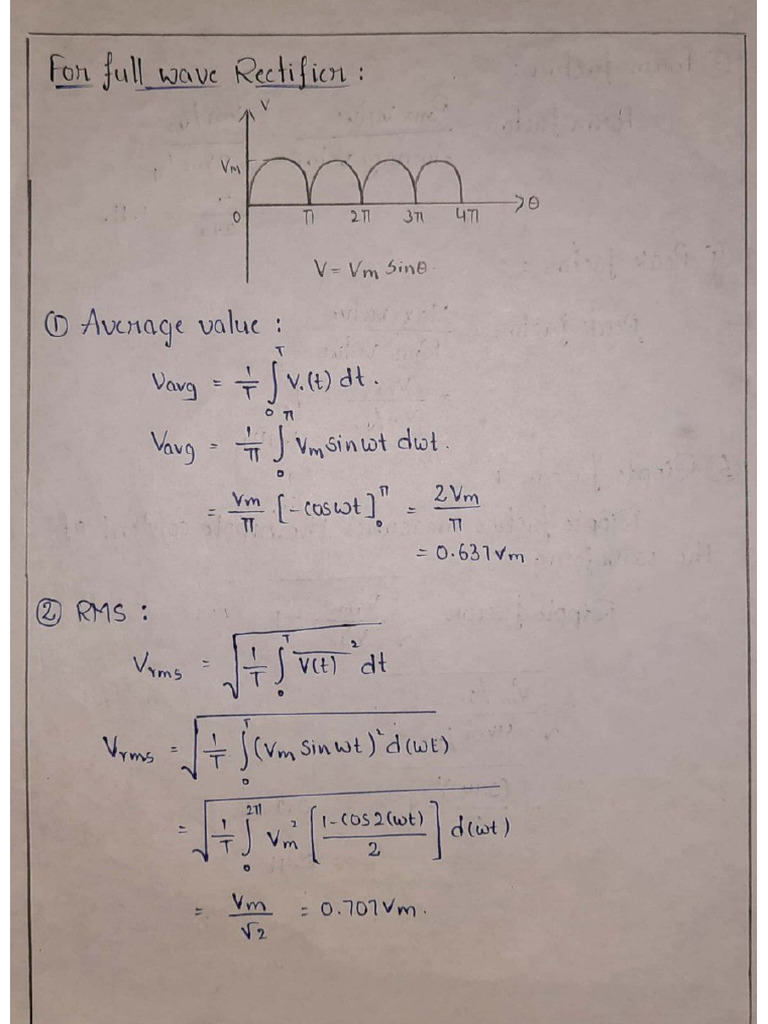 For full wave Rectifier :
V
Vm
0 π 2π 3π 4π θ
V = Vm Sinθ.
① Average value :
Vavg = 1/T ∫₀ᵀ V.(t) dt.
Vavg = 1/π ∫₀^π Vm sinωt dωt.
= Vm/π [-cosωt]₀^π = 2Vm/π
= 0.637Vm.
② RMS :
Vrms = √(1/T ∫₀ᵀ V(t)² dt)
Vrms = √(1/T ∫₀ᵀ (Vm Sinωt)² d(ωt))
= √(1/T ∫₀^2π Vm² [1-cos2(ωt)/2] d(ωt))
= Vm/√2 = 0.707Vm.